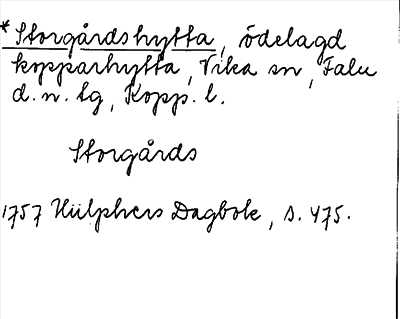 * Storgårdshytta, ödelagd
kopparhytta, Vika sn, Falu
d.n. tg, Kopp. l.
Storgårds
1757 Hülphers Dagbok, s. 475.